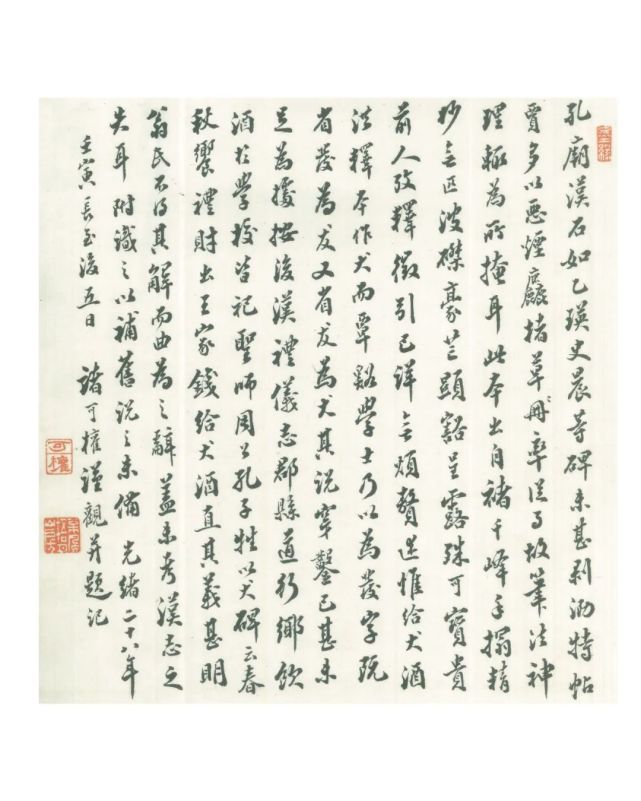 孔廟漢石如乙瑛史晨等碑未甚剥泐特帖
賈多以惡煙麤楮草冊率從事故筆法神
理輒為所掩耳此本出自褚千峰手搨精
妙無匹波磔豪芒顯豁呈露殊可寶貴
前人攷釋徵引已詳無煩贅述惟給犬酒
法釋本作犬而覃谿學士乃以為發字既
省發為犮又省犮為犬其說穿鑿已甚未
足為據按後漢禮儀志郡縣道行鄉飲
酒於學校皆祀聖師周公孔子牲以犬碑云春
秋饗禮財出王家錢給犬酒直其義甚明
翁氏不得其解而曲為之辭蓋未考漢志之
失耳附識之以補舊說之未備光緒二十八年
壬寅長至後五日 諸可權謹觀并題記
可權